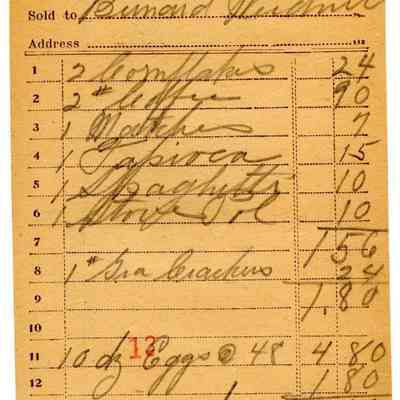 Sold to Bernard
Address
1 2 Cornflakes 24
2 2# Coffee 90
3 1 Matches 7
4 1 Tapioca 15
5 1 Spaghetti 10
6 1 Stove Pol 10
7 1 56
8 1# Gra Crackers 24
9 1,80
10
12
11 10 dz Eggs @ 48 4 80
12 1 80